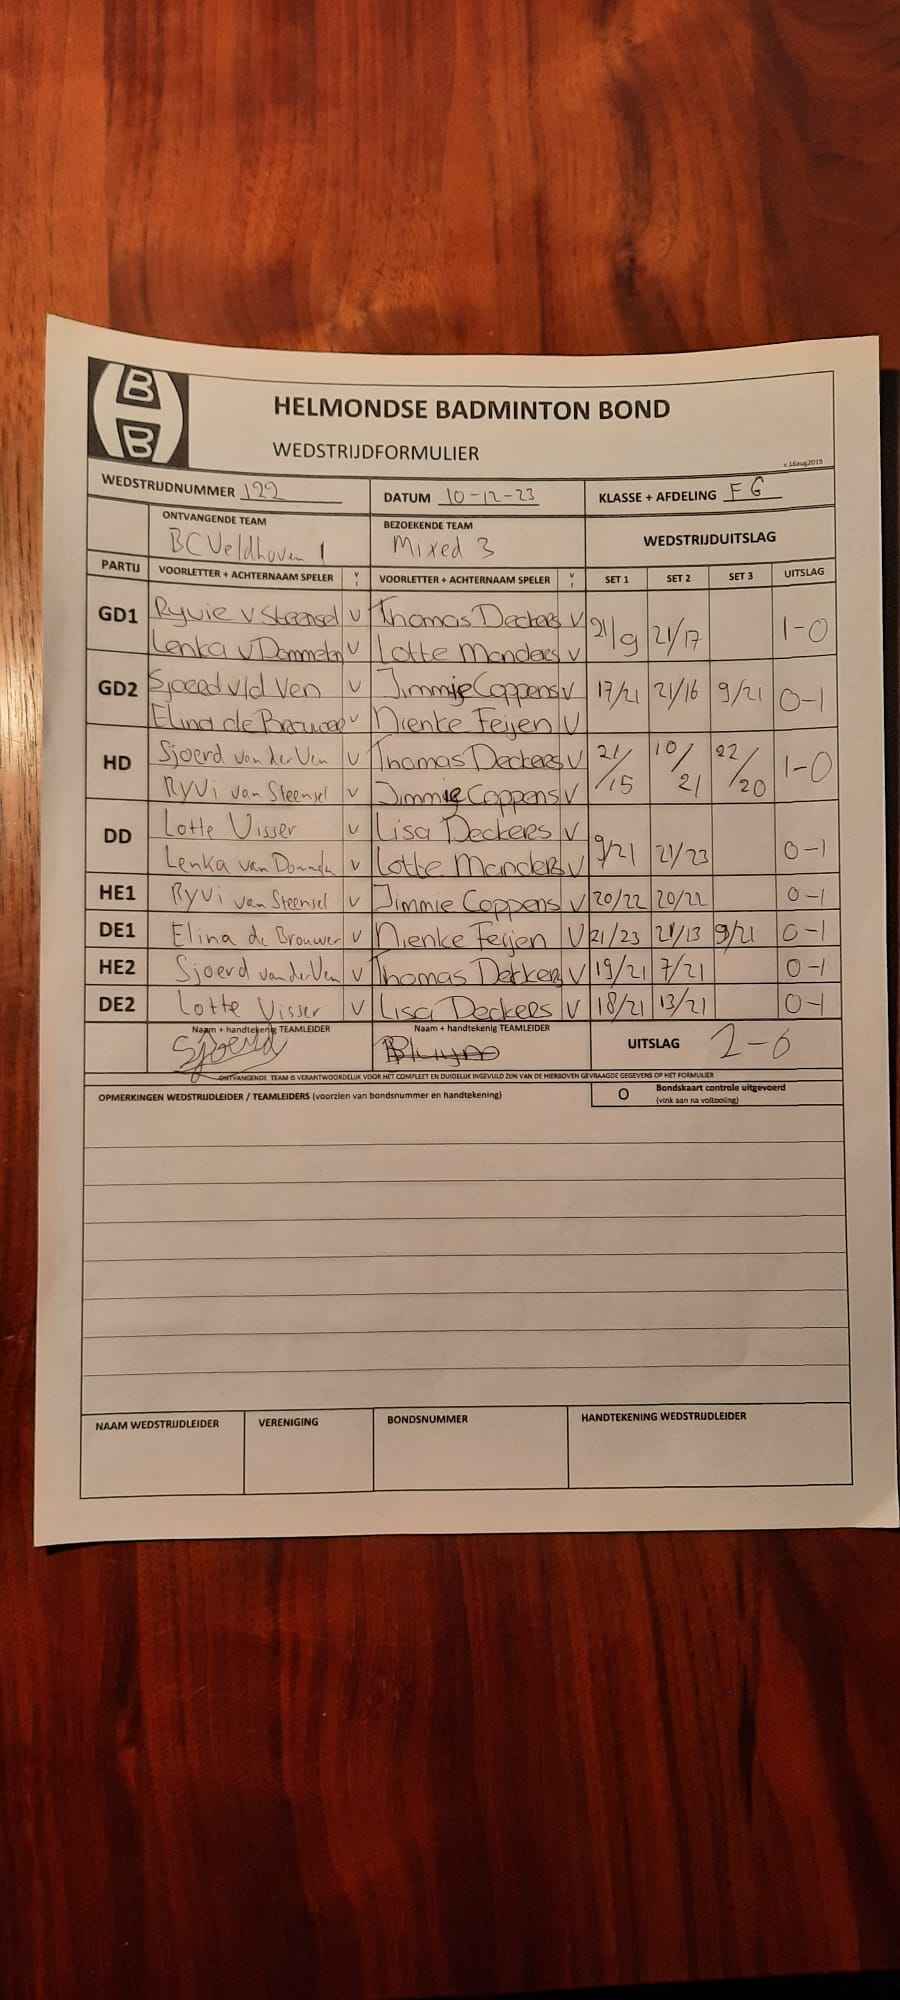 HBB
HELMONDSE BADMINTON BOND
WEDSTRIJDFORMULIER
v.16aug2015
WEDSTRIJDNUMMER 122 DATUM 10-12-23 KLASSE + AFDELING F6
ONTVANGENDE TEAM BEZOEKENDE TEAM WEDSTRIJDUITSLAG
BC Veldhoven 1 Mixed 3
PARTIJ VOORLETTER + ACHTERNAAM SPELER V VOORLETTER + ACHTERNAAM SPELER V SET 1 SET 2 SET 3 UITSLAG
GD1 Ryvie v Steensel V Thomas Deckers V 21/9 21/17 1-0
Lenka v Dommelen V Lotte Manders V
GD2 Sjoerd v/d Ven V Jimmie Coppens V 17/21 21/16 9/21 0-1
Elina de Brouwer V Nienke Feijen V
HD Sjoerd van der Ven V Thomas Deckers V 21/15 10/21 22/20 1-0
Ryvi van Steensel V Jimmie Coppens V
DD Lotte Visser V Lisa Deckers V 9/21 21/23 0-1
Lenka van V Lotte Manders V
HE1 Ryvi van Steensel V Jimmie Coppens V 20/22 20/22 0-1
DE1 Elina de Brouwer V Nienke Feijen V 21/23 21/13 9/21 0-1
HE2 Sjoerd van der Ven V Thomas Dekkers V 19/21 7/21 0-1
DE2 Lotte Visser V Lisa Deckers V 18/21 13/21 0-1
Naam + handtekenig TEAMLEIDER Naam + handtekenig TEAMLEIDER UITSLAG 2-6
Sjoerd
ONTVANGENDE TEAM IS VERANTWOORDELIJK VOOR HET COMPLEET EN DUIDELIJK INGEVULD ZIJN VAN DE HIERBOVEN GEVRAAGDE GEGEVENS OP HET FORMULIER
OPMERKINGEN WEDSTRIJDLEIDER / TEAMLEIDERS (voorzien van bondsnummer en handtekening) O Bondskaart controle uitgevoerd
(vink aan na voltooiing)
NAAM WEDSTRIJDLEIDER VERENIGING BONDSNUMMER HANDTEKENING WEDSTRIJDLEIDER